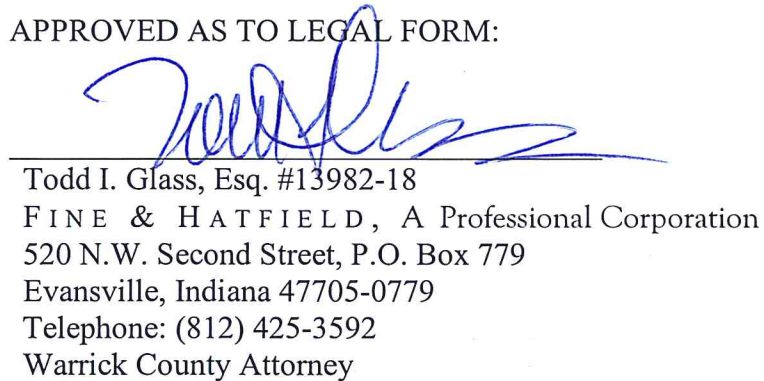 APPROVED AS TO LEGAL FORM:
Todd I. Glass, Esq. #13982-18
FINE & HATFIELD, A Professional Corporation
520 N.W. Second Street, P.O. Box 779
Evansville, Indiana 47705-0779
Telephone: (812) 425-3592
Warrick County Attorney